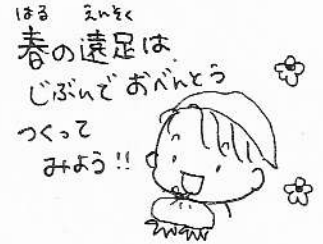 はる えんそく
春の遠足は、
じぶんで おべんとう
つくって
みよう!!